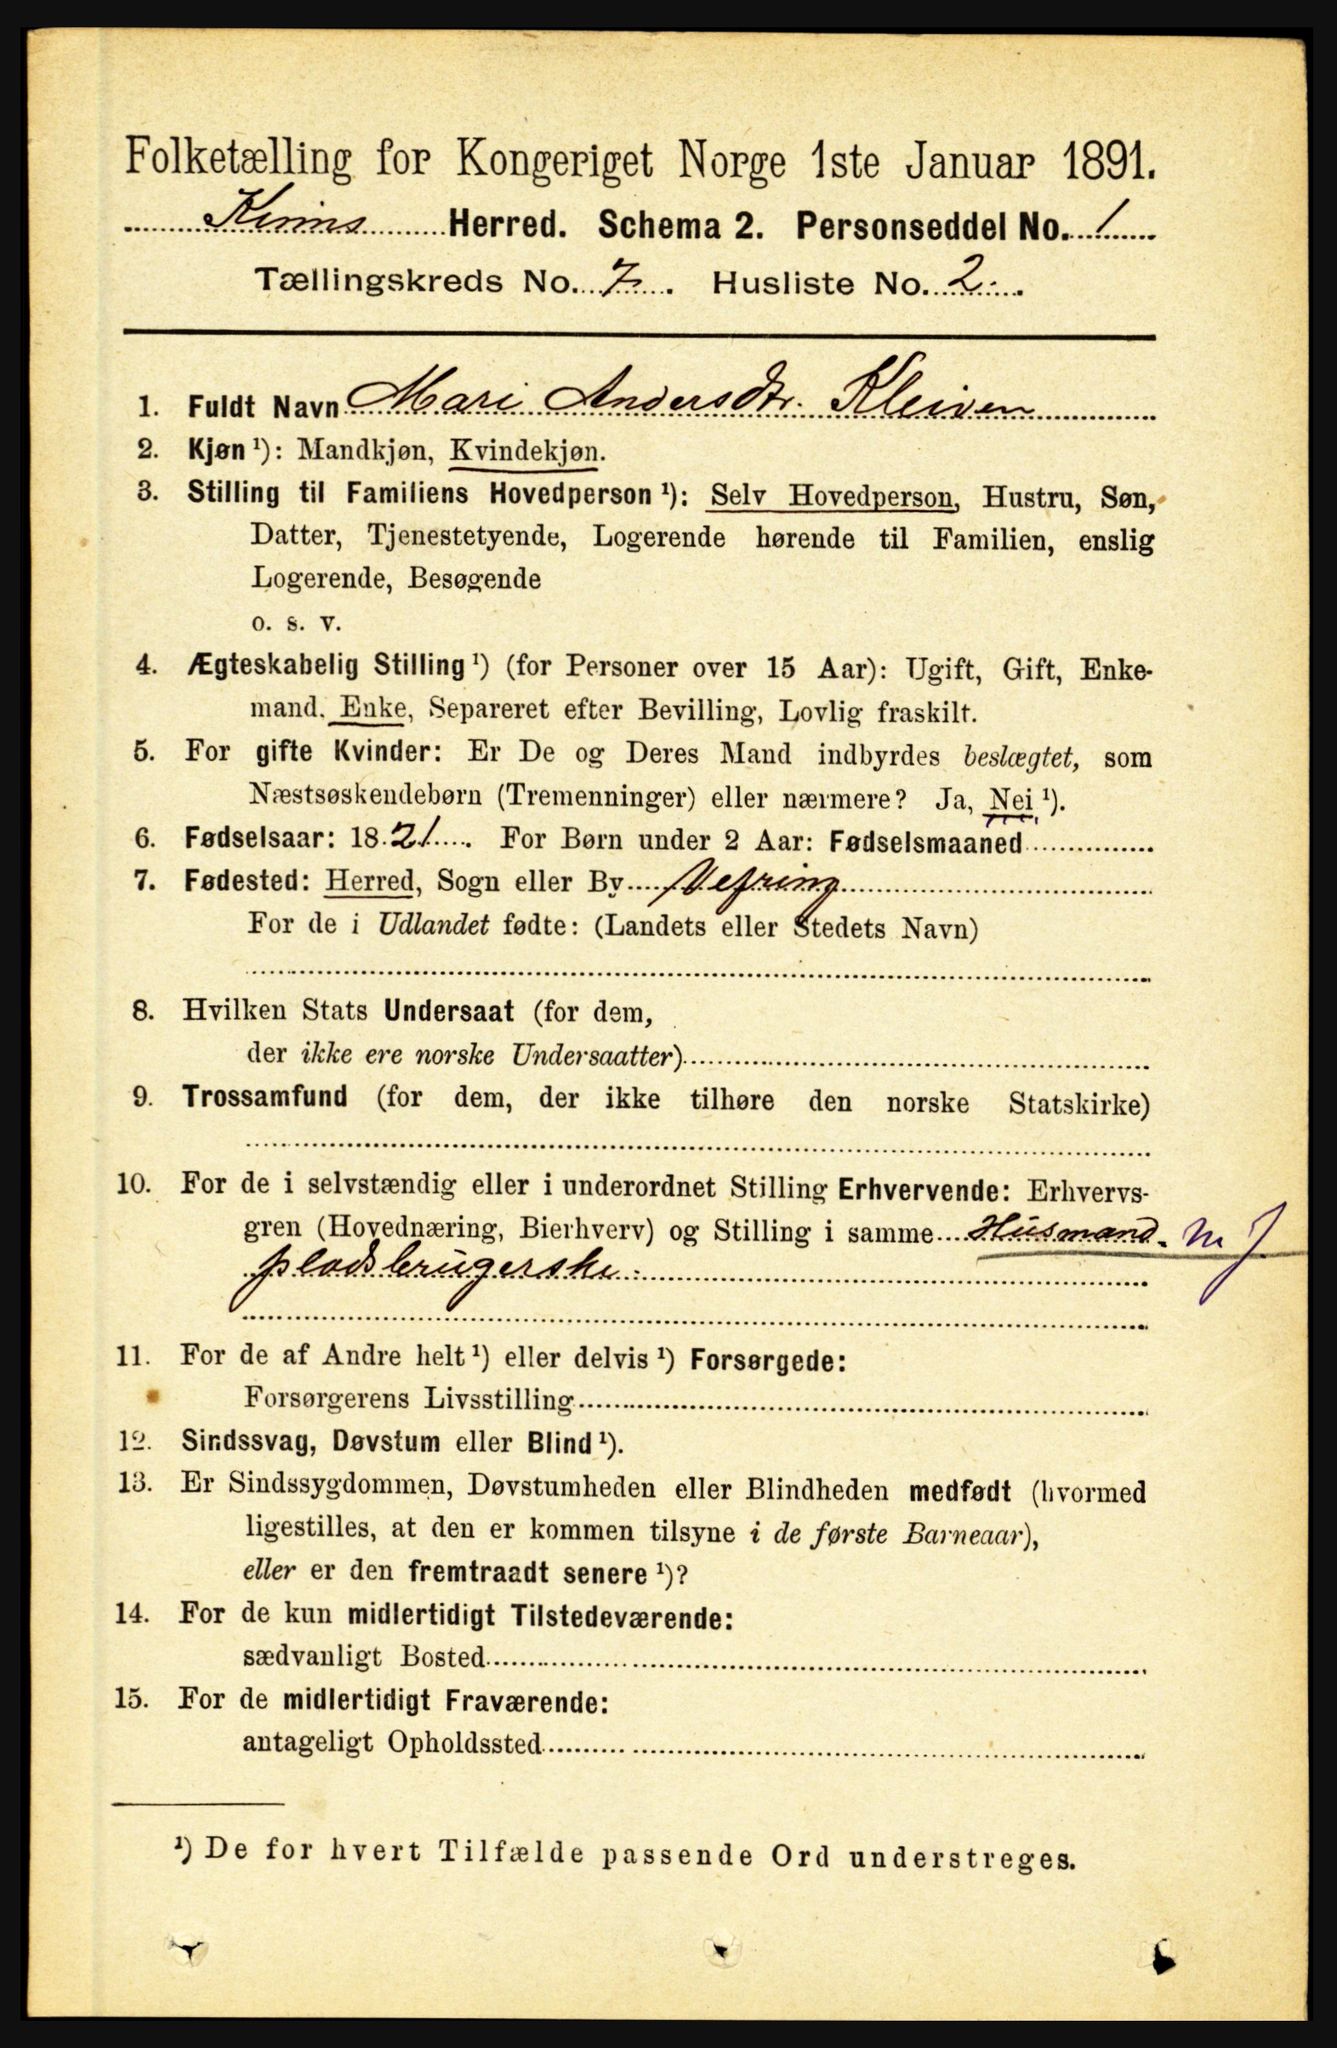 Folketælling for Kongeriget Norge 1ste Januar 1891.
Kinns Herred. Schema 2. Personseddel No. 1
Tællingskreds No. 7. Husliste No. 2.
1. Fuldt Navn Mari Andersdtr. Kleiven
2. Kjøn ¹): Mandkjøn, Kvindekjøn.
3. Stilling til Familiens Hovedperson ¹): Selv Hovedperson, Hustru, Søn,
Datter, Tjenestetyende, Logerende hørende til Familien, enslig
Logerende, Besøgende
o. s. v.
4. Ægteskabelig Stilling ¹) (for Personer over 15 Aar): Ugift, Gift, Enke-
mand, Enke, Separeret efter Bevilling, Lovlig fraskilt.
5. For gifte Kvinder: Er De og Deres Mand indbyrdes beslægtet, som
Næstsøskendebørn (Tremenninger) eller nærmere? Ja, Nei ¹).
6. Fødselsaar: 1821. For Børn under 2 Aar: Fødselsmaaned
7. Fødested: Herred, Sogn eller By Vefring
For de i Udlandet fødte: (Landets eller Stedets Navn)
8. Hvilken Stats Undersaat (for dem,
der ikke ere norske Undersaatter)
9. Trossamfund (for dem, der ikke tilhøre den norske Statskirke)
10. For de i selvstændig eller i underordnet Stilling Erhvervende: Erhvervs-
gren (Hovednæring, Bierhverv) og Stilling i samme Husmand- m j
pladsbrugerske
11. For de af Andre helt ¹) eller delvis ¹) Forsørgede:
Forsørgerens Livsstilling
12. Sindssvag, Døvstum eller Blind ¹).
13. Er Sindssygdommen, Døvstumheden eller Blindheden medfødt (hvormed
ligestilles, at den er kommen tilsyne i de første Barneaar),
eller er den fremtraadt senere ¹)?
14. For de kun midlertidigt Tilstedeværende:
sædvanligt Bosted
15. For de midlertidigt Fraværende:
antageligt Opholdssted
¹) De for hvert Tilfælde passende Ord understreges.